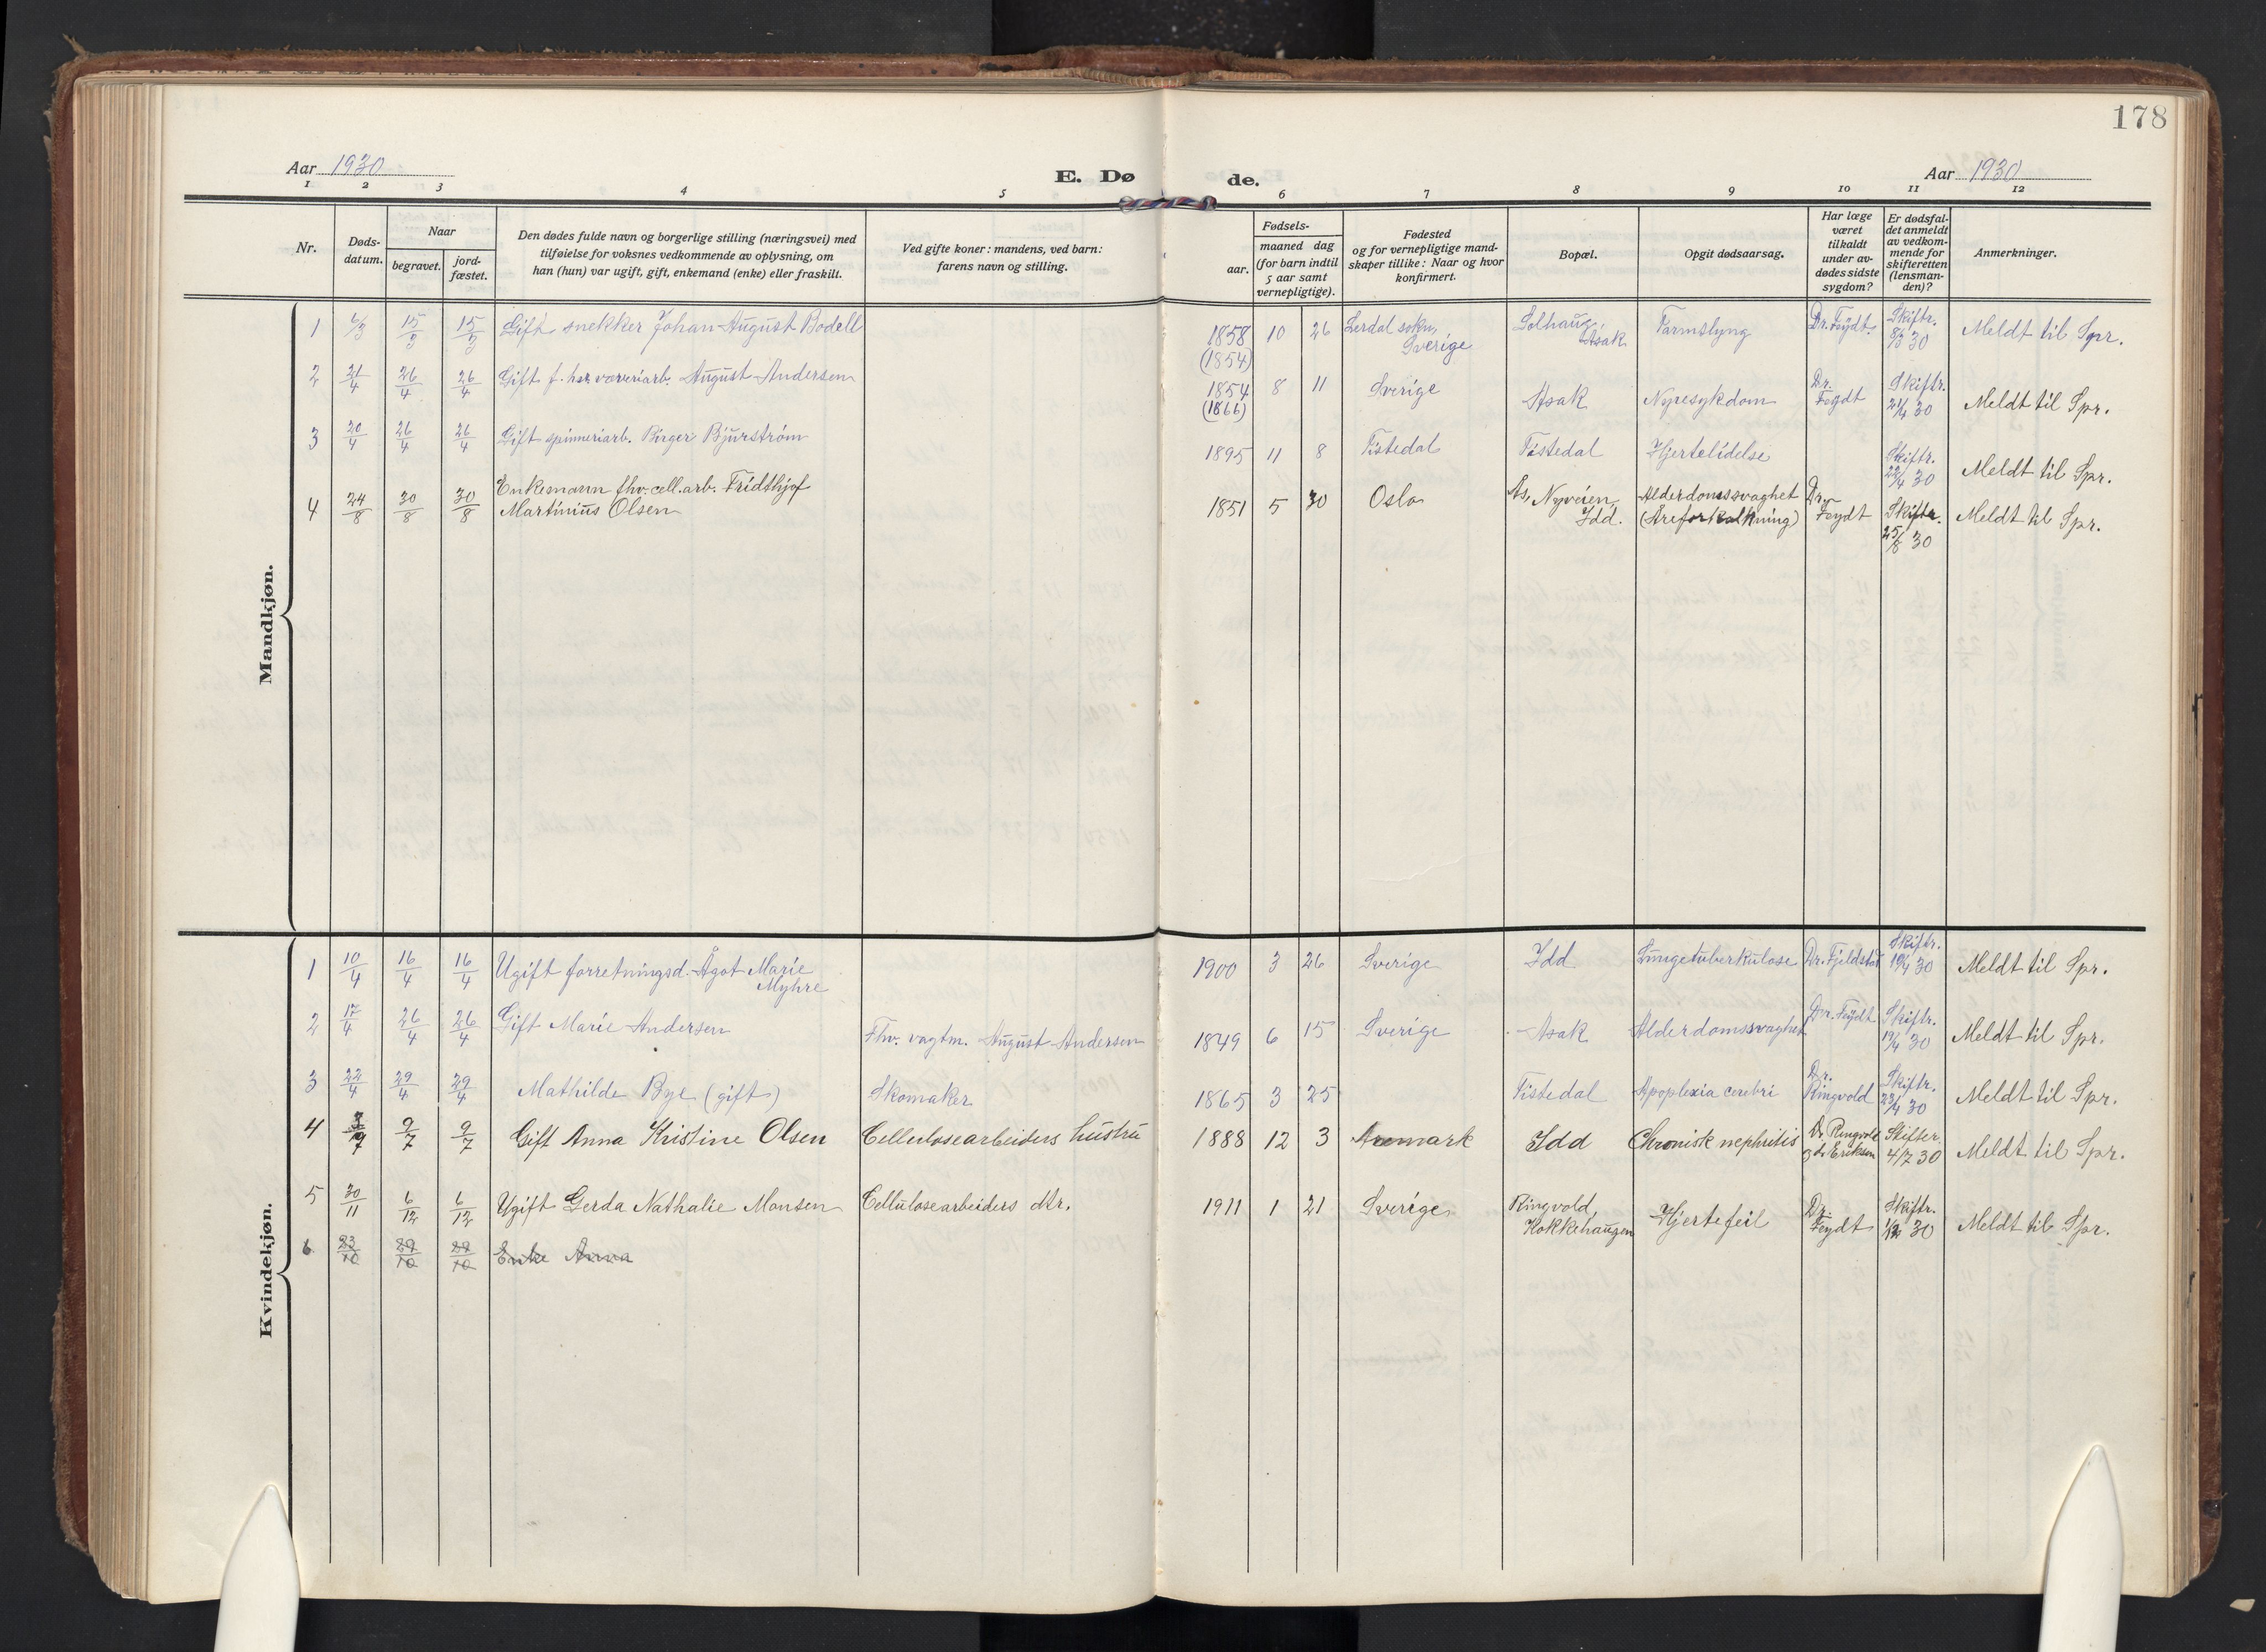 178
Aar 1930
E. Dø
de.
Aar 1930
1 2 3 4 5 6 7 8 9 10 11 12
Nr.
Døds-
datum.
Naar
begravet.
jord-
fæstet.
Den dødes fulde navn og borgerlige stilling (næringsvei) med
tilføielse for voksnes vedkommende av oplysning, om
han (hun) var ugift, gift, enkemand (enke) eller fraskilt.
Ved gifte koner: mandens, ved barn:
farens navn og stilling.
Fødsels-
aar.
maaned dag
(for barn indtil
5 aar samt
vernepligtige).
Fødested
og for vernepligtige mand-
skaper tillike: Naar og hvor
konfirmert.
Bopæl.
Opgit dødsaarsag.
Har læge
været
tilkaldt
under av-
dødes sidste
sygdom?
Er dødsfal-
det anmeldt
av vedkom-
mende for
skifteretten
(lensman-
den)?
Anmerkninger.
Mandkjøn.
1 6/3 15/3 15/3 Gift snekker Johan August Bodell 1858 10 26 Lerdal sokn, Solhaug, Tarmslyng Dr. Feydt. Skiftr. Meldt til Spr.
(1854) Sverige Asak 8/3 30
2 21/4 26/4 26/4 Gift f. hv. væveriarb. August Andersen 1854 8 11 Sverige Asak Nyresykdom Dr. Skiftr. Meldt til Spr.
(1866) Feydt 21/4 30
3 20/4 26/4 26/4 Gift spinneriarb. Birger Bjurström 1895 11 8 Tistedal Tistedal Hjertelidelse Skiftr. Meldt til Spr.
22/4 30
Enkemann fhv. cell.arb. Fridthjof
4 24/8 30/8 30/8 Martinius Olsen 1851 5 30 Oslo As, Nyveien, Alderdomssvaghet Dr. Skiftr. Meldt til Spr.
Idd. (Åreforkalkning) Feydt 25/8 30
Kvindekjøn.
1 10/4 16/4 16/4 Ugift forretningsd. Ågot Marie 1900 3 26 Sverige Idd Lungetuberkulose Dr. Fjeldstad Skiftr. Meldt til Spr.
Myhre 30
2 17/4 26/4 26/4 Gift Marie Andersen Fhv. vagtm. August Andersen 1849 6 15 Sverige Asak Alderdomssvaghet Dr. Feydt Skiftr. Meldt til Spr.
19/4 30
3 22/4 29/4 29/4 Mathilde Bye (gift) Skomaker 1865 3 25 Tistedal Apoplexia cerebri Dr. Skiftr. Meldt til Spr.
Ringvold 23/4 30
4 9/7 9/7 Gift Anna Kristine Olsen Cellulosearbeiders hustru 1888 12 3 Aremark Idd Chronisk nephritis Dr. Ringvold Skifter. Meldt til Spr.
og dr Eriksen 4/7 30
5 30/11 6/12 6/12 Ugift Gerda Nathalie Monsen Cellulosearbeiders dtr. 1911 1 21 Sverige Ringvold, Hjertefeil Dr. Skiftr. Meldt til Spr.
Kokkehaugen Feydt 1/12 30
6 23/10 29/10 29/10 Enke Anna